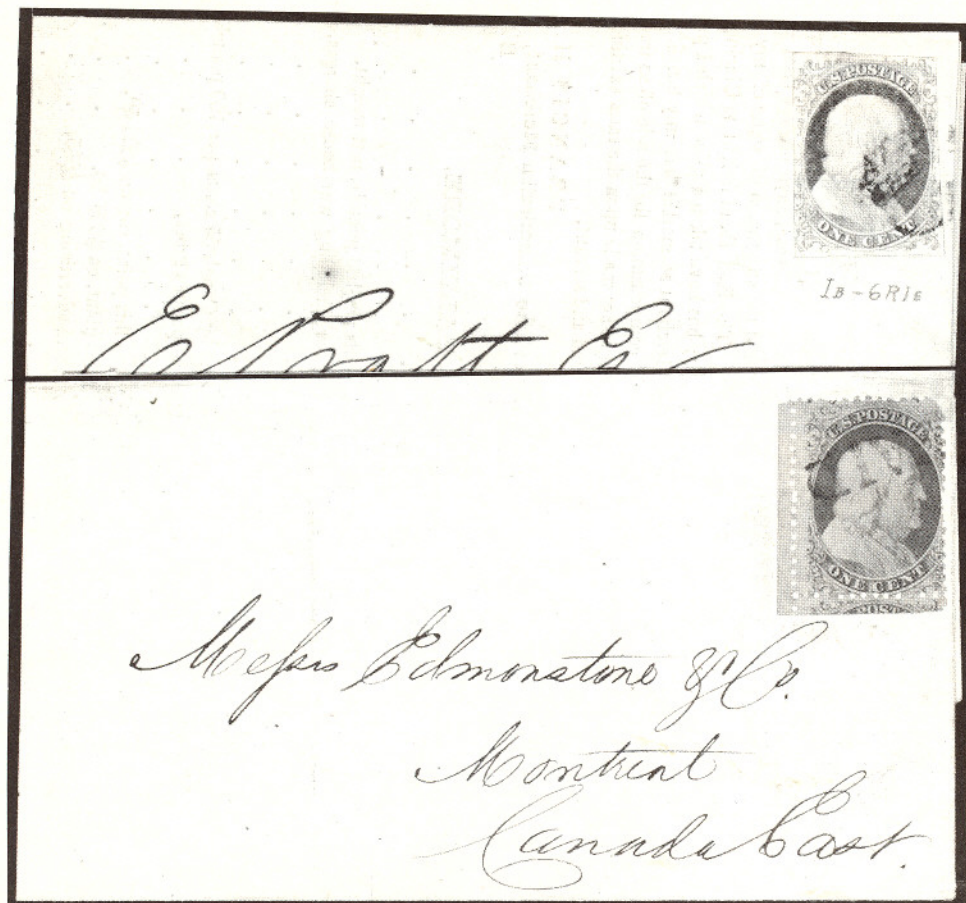 U.S.POSTAGE
ONE CENT
IB-6R1E
E Pratt Es
U.S.POSTAGE
ONE CENT
POST
Messrs Edmonstone & Co.
Montreal
Canada East.